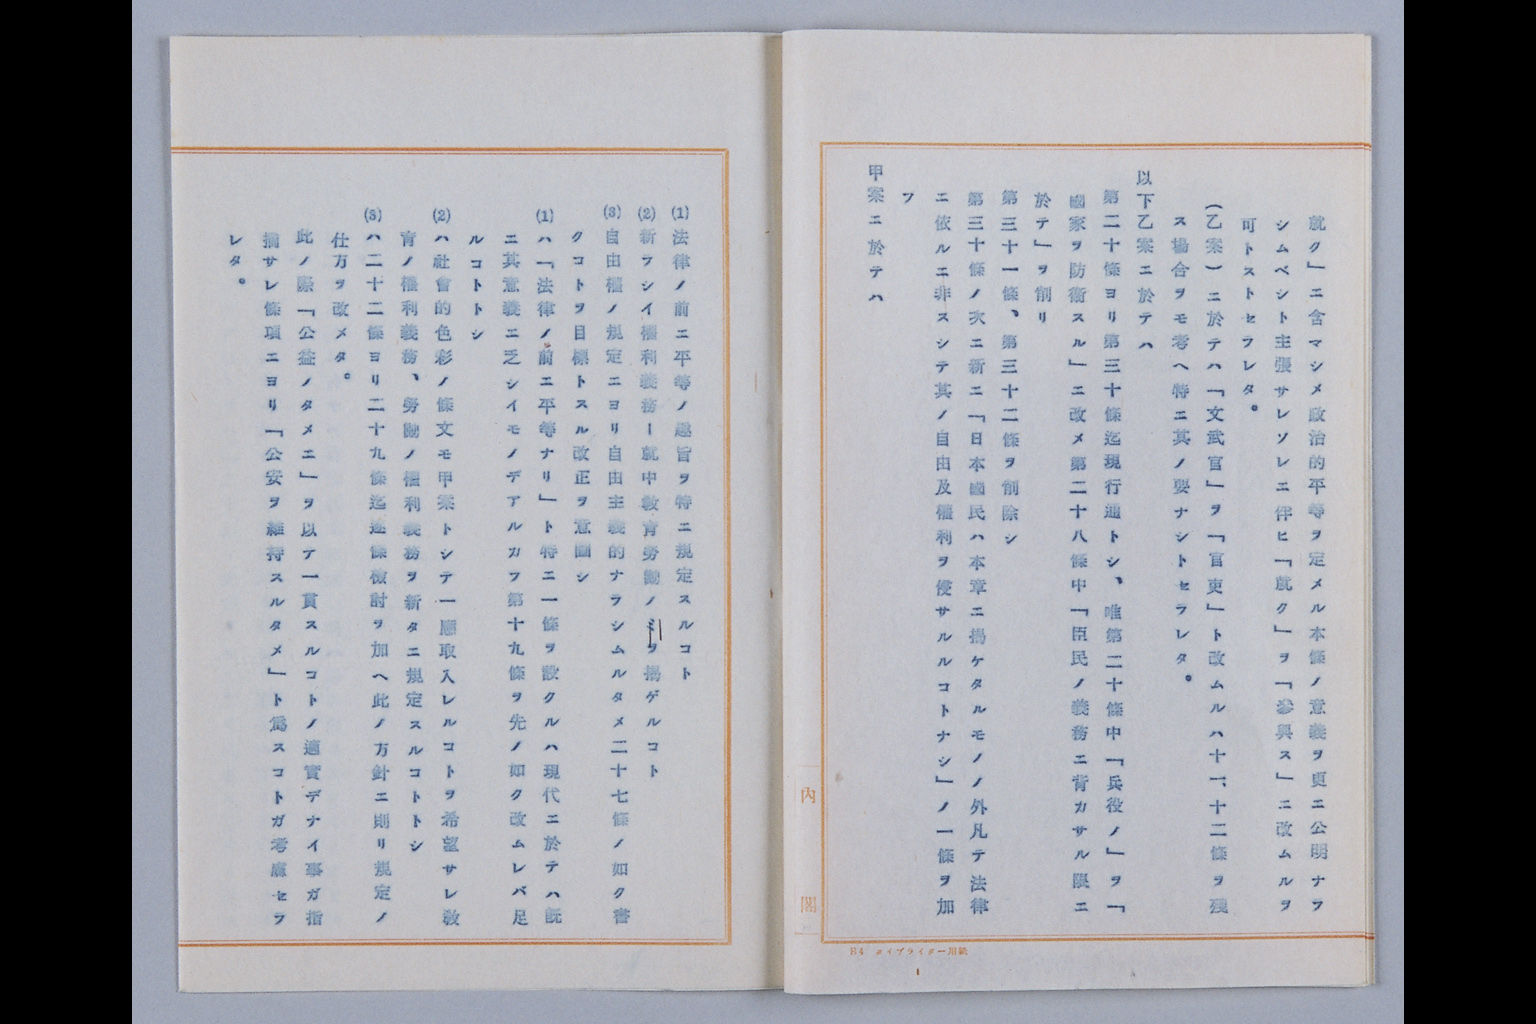 就ク」ニ含マシメ政治的平等ヲ定メル本條ノ意義ヲ更ニ公明ナラ
シムベシト主張サレソレニ伴ヒ「就ク」ヲ「參與ス」ニ改ムルヲ
可トストセラレタ。
(乙案)ニ於テハ「文武官」ヲ「官吏」ト改ムルハ十一、十二條ヲ残
ス場合ヲモ考ヘ特ニ其ノ要ナシトセラレタ。
以下乙案ニ於テハ
第二十條ヨリ第三十條迄現行通トシ、唯第二十條中「兵役ノ」ヲ「
國家ヲ防衞スル」ニ改メ第二十八條中「臣民ノ義務ニ背カサル限ニ
於テ」ヲ削リ
第三十一條、第三十二條ヲ削除シ
第三十條ノ次ニ新ニ「日本國民ハ本章ニ揭ケタルモノノ外凡テ法律
ニ依ルニ非スシテ其ノ自由及權利ヲ侵サルルコトナシ」ノ一條ヲ加
フ
甲案ニ於テハ
内閣
B4 タイプライター用紙
(1)法律ノ前ニ平等ノ趣旨ヲ特ニ規定スルコト
(2)新ラシイ權利義務ー就中敎育勞働ノミヲ揭ゲルコト
(3)自由權ノ規定ニヨリ自由主義的ナラシムルタメ二十七條ノ如ク書
クコトヲ目標トスル改正ヲ意圖シ
(1)ハ「法律ノ前ニ平等ナリ」ト特ニ一條ヲ設クルハ現代ニ於テハ既
ニ其意義ニ乏シイモノデアルカラ第十九條ヲ先ノ如ク改ムレバ足
ルコトトシ
(2)ハ社會的色彩ノ條文モ甲案トシテ一應取入レルコトヲ希望サレ敎
育ノ權利義務、勞働ノ權利義務ヲ新タニ規定スルコトトシ
(3)ハ二十二條ヨリ二十九條迄逐條檢討ヲ加ヘ此ノ方針ニ則リ規定ノ
仕方ヲ改メタ。
此ノ際「公益ノタメニ」ヲ以テ一貫スルコトノ適實デナイ事ガ指
摘サレ條項ニヨリ「公安ヲ維持スルタメ」ト爲スコトガ考慮セラ
レタ。